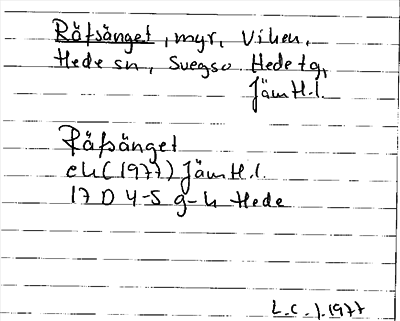 Räfsänget, myr, Viken,
Hede sn, Svegso Hede tg,
Jämtl.l.
Räfsänget
ek (1977) Jämtl.l.
17 D 4-5 g-h Hede
L.C. J. 1977